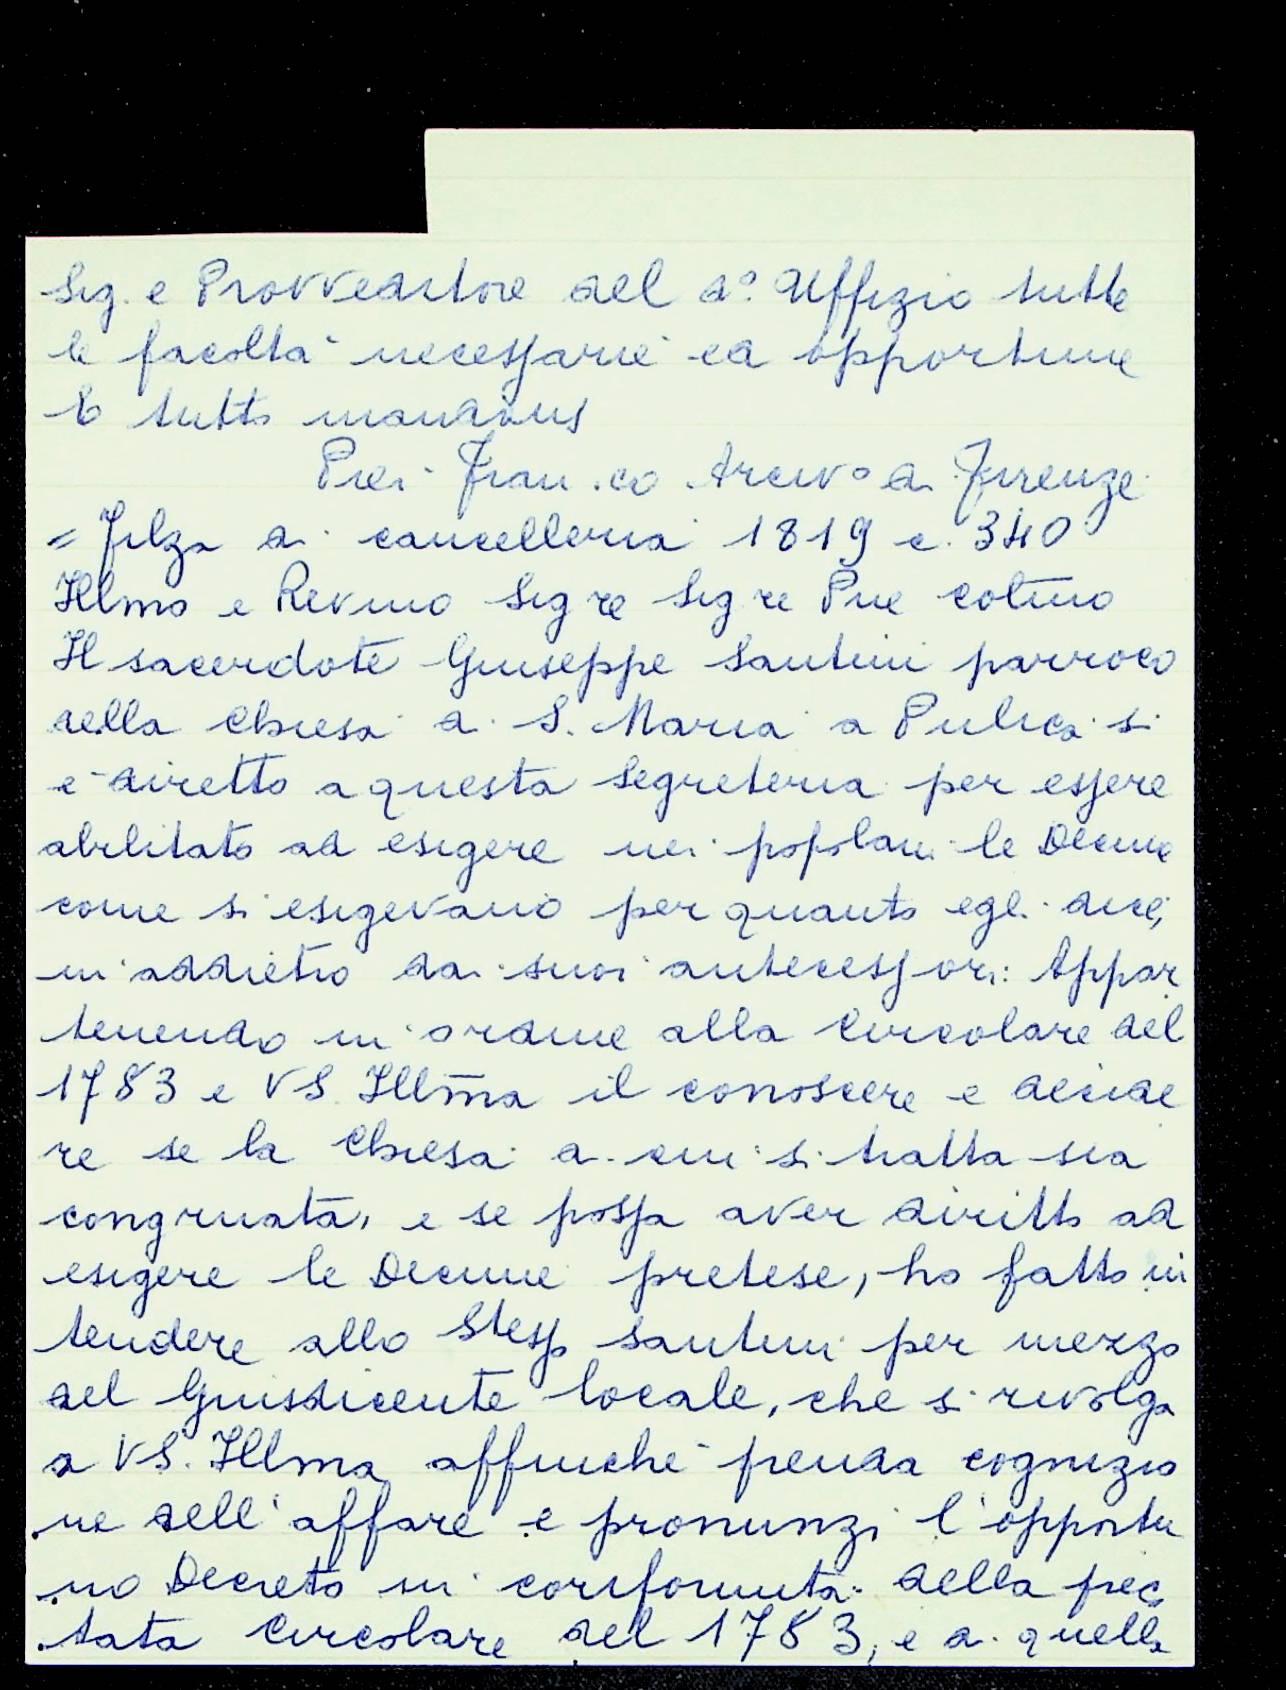 Sig. e Provveditore del d.º Uffizio tutte
le facoltà necessarie ed opportune
E tutto mandans
Pier Fran.co Arciv.º di Firenze
= Filza di cancelleria 1819 c. 340
Illmo e Revmo Sig re Sig re Pne colmo
Il sacerdote Giuseppe Santini parroco
della Chiesa di S. Maria a Pulica si
e diretto a questa Segreteria per essere
abilitato ad esigere nei popolani le Decime
come si esigevano per quanto egli dice,
in addietro dai suoi antecessori: Appar
tenendo in ordine alla Circolare del
1783 e VS. Illma il conoscere e decide
re se la Chiesa di cui si tratta sia
congruata, e se possa aver diritto ad
esigere le Decime pretese, ho fatto in
tendere allo Stesso Santini per mezzo
del Giusdicente locale, che si rivolga
a VS. Illma affinchè prenda cognizio
ne dell'affare e pronunzi l'opportu
no Decreto in coriformità della prec
tata Circolare del 1783, e di quella